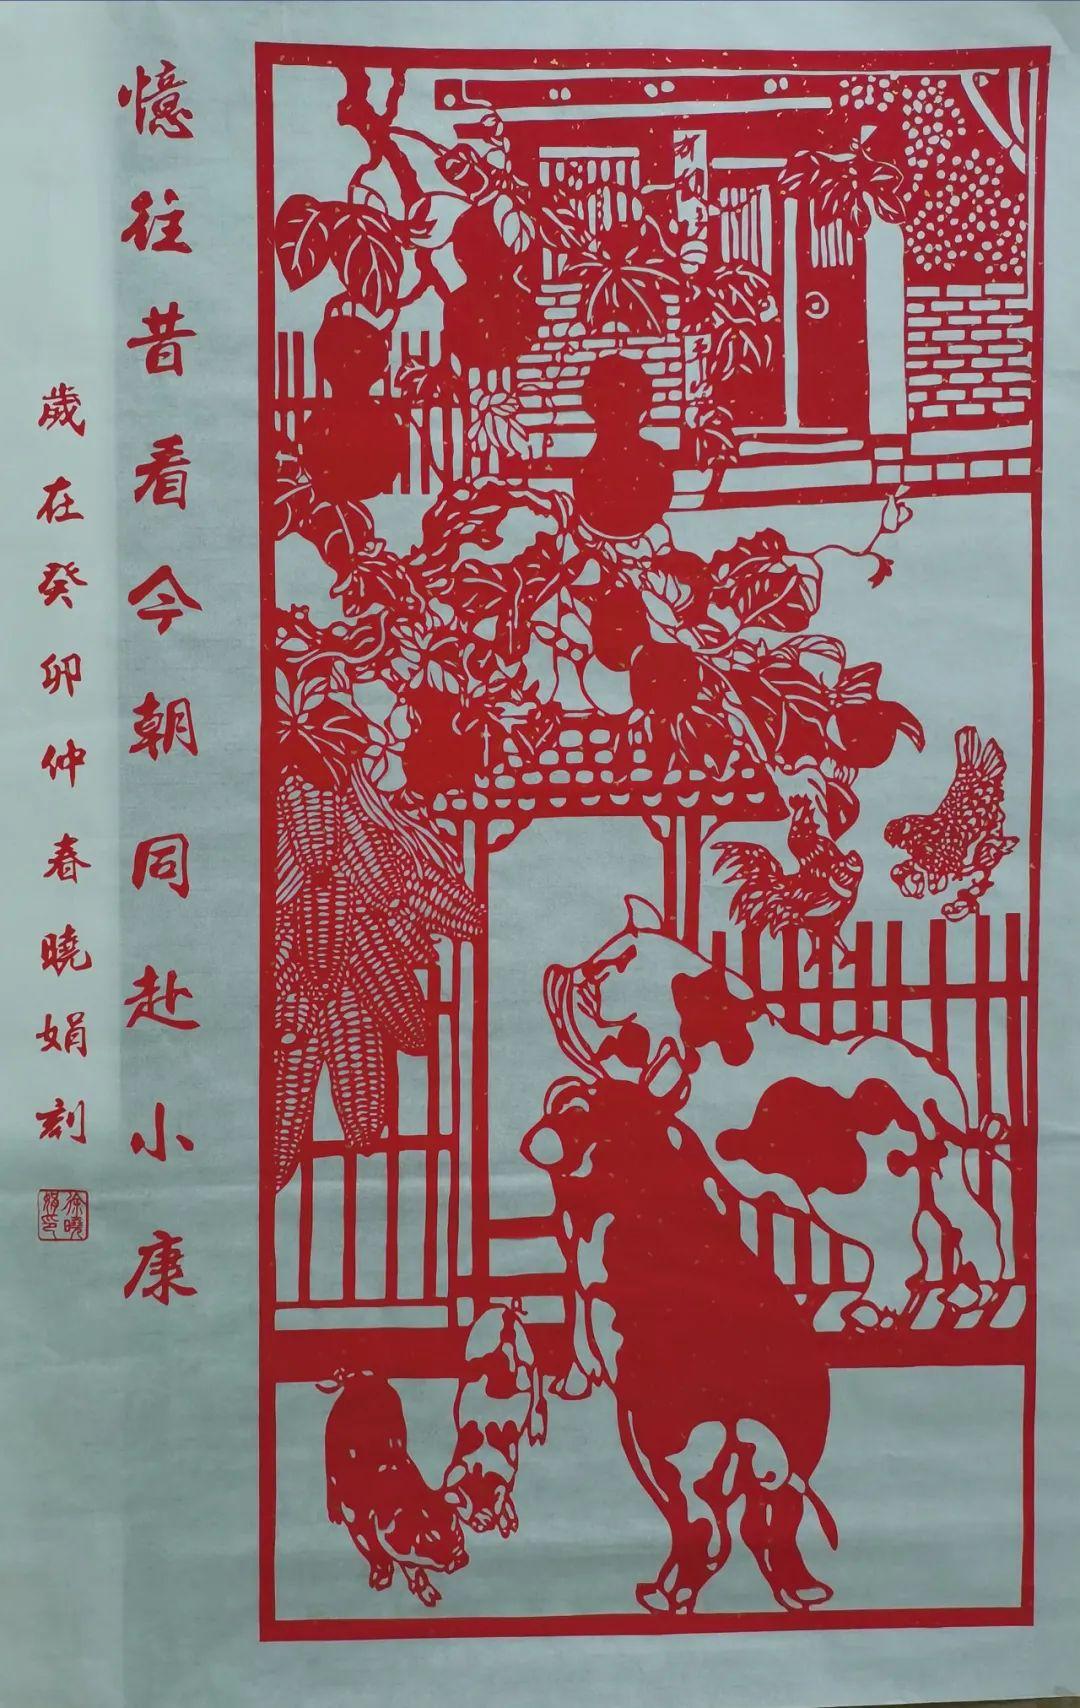 憶往昔看今朝同赴小康
歲在癸卯仲春曉娟刻
徐曉娟印